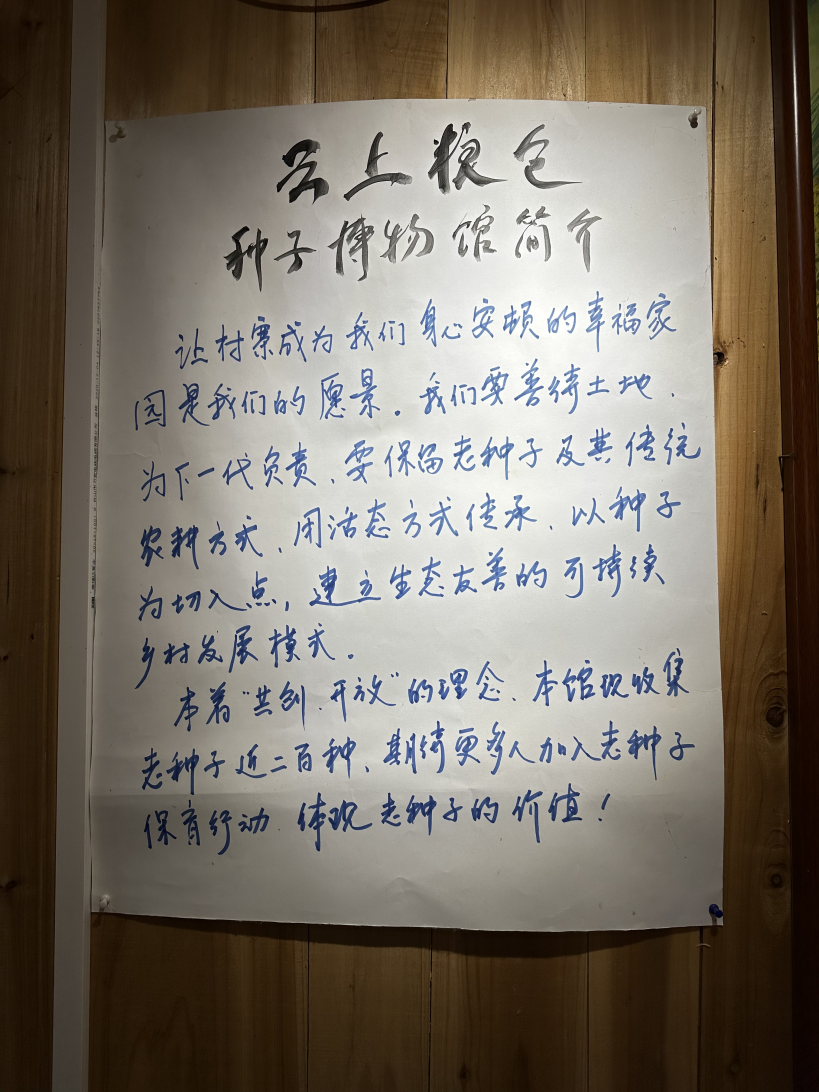 云上粮仓
种子博物馆简介
让村寨成为我们身心安顿的幸福家
园是我们的愿景。我们要善待土地、
为下一代负责、要保留老种子及其传统
农耕方式、用活态方式传承、以种子
为切入点，建立生态友善的可持续
乡村发展模式。
本着“共创、开放”的理念、本馆现收集
老种子近二百种、期待更多人加入老种子
保育行动 体现老种子的价值！